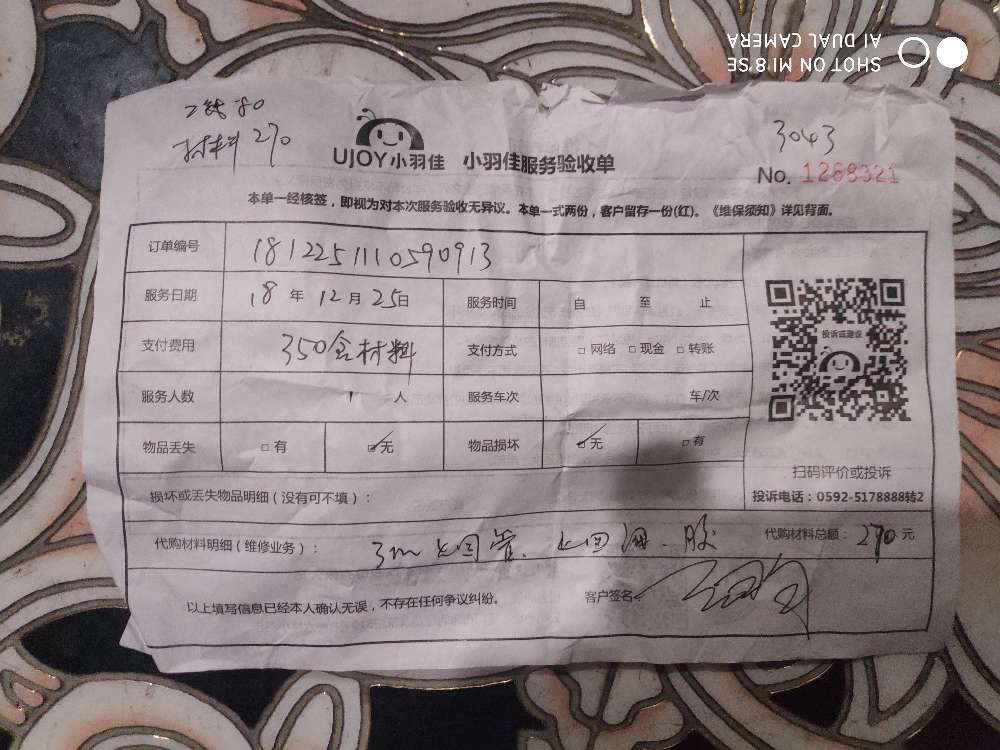 SHOT ON MI 8 SE
AI DUAL CAMERA
80
材料 270
3043
UJOY小羽佳 小羽佳服务验收单
No. 1268321
本单一经核签，即视为对本次服务验收无异议。本单一式两份，客户留存一份(红)。《维保须知》详见背面。
订单编号 18122511110590913
服务日期 18 年 12 月 25 日 服务时间 自 至 止
支付费用 350含材料 支付方式 □ 网络 □ 现金 □ 转账
服务人数 1 人 服务车次 车/次
物品丢失 □ 有 ☑ 无 物品损坏 ☑ 无 □ 有
投诉或建议
扫码评价或投诉
投诉电话：0592-5178888转2
损坏或丢失物品明细（没有可不填）：
代购材料明细（维修业务）： 3m 管、胶 代购材料总额：270元
以上填写信息已经本人确认无误，不存在任何争议纠纷。 客户签名：